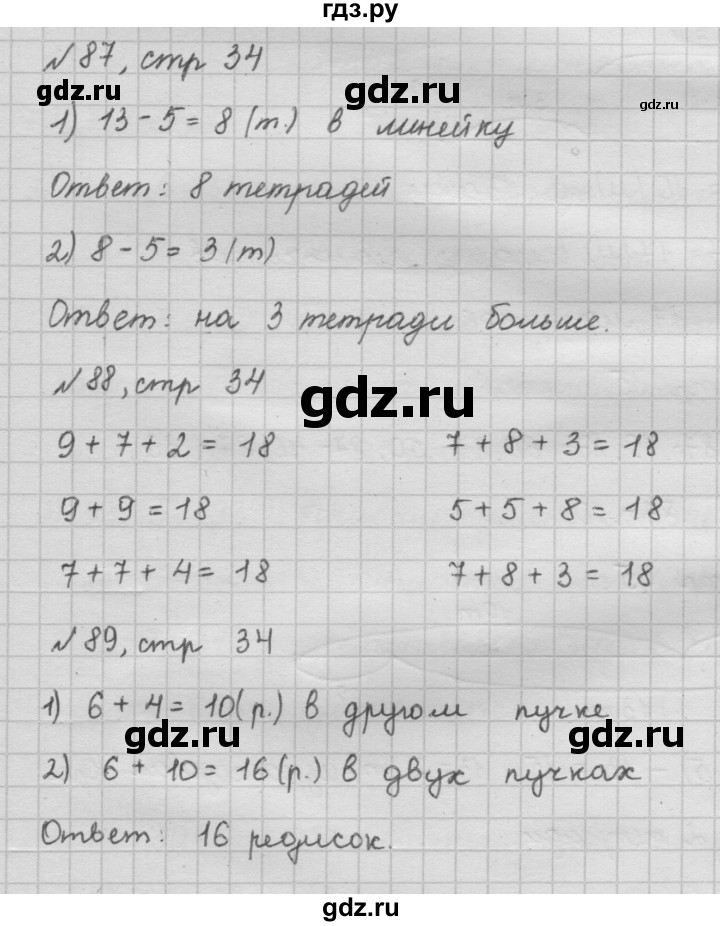 гдз.ру
№87, стр 34
gdz.ru gdz.ru gdz.ru
1) 13 - 5 = 8 (т.) в линейку
Ответ: 8 тетрадей
2) 8 - 5 = 3 (т)
Ответ: на 3 тетради больше.
№88, стр 34
gdz.ru
9 + 7 + 2 = 18 7 + 8 + 3 = 18
9 + 9 = 18 5 + 5 + 8 = 18
7 + 7 + 4 = 18 7 + 8 + 3 = 18
№89, стр 34
1) 6 + 4 = 10 (р.) в другом пучке
gdz.ru gdz.ru
2) 6 + 10 = 16 (р.) в двух пучках
Ответ: 16 редисок.
gdz.ru